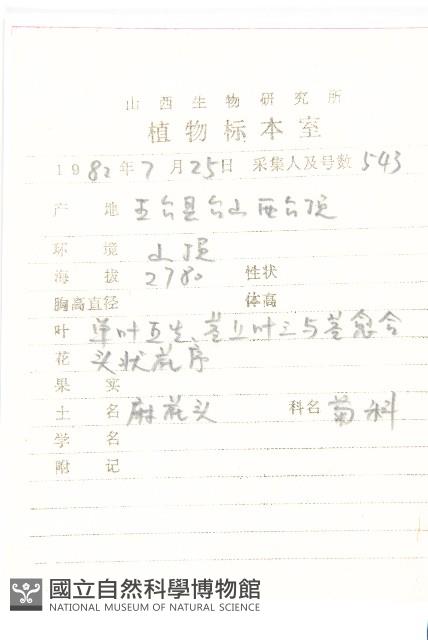 山西生物研究所
植物标本室
1982年7月25日 采集人及号数 543
产地 五台县台山西台顶
环境 山顶
海拔 2780 性状
胸高直径 体高
叶 单叶互生、茎上叶三与茎愈合
花 头状花序
果实
土名 麻花头 科名 菊科
学名
附记
國立自然科學博物館
NATIONAL MUSEUM OF NATURAL SCIENCE